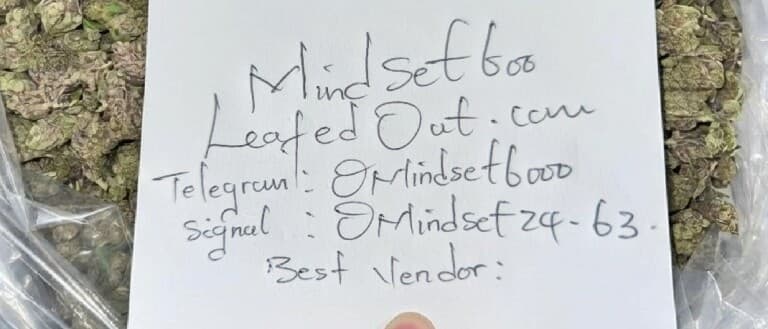 Mindset600
Leafed Out.com
Telegram: @Mindset6000
Signal : @Mindset24-63.
Best Vendor: